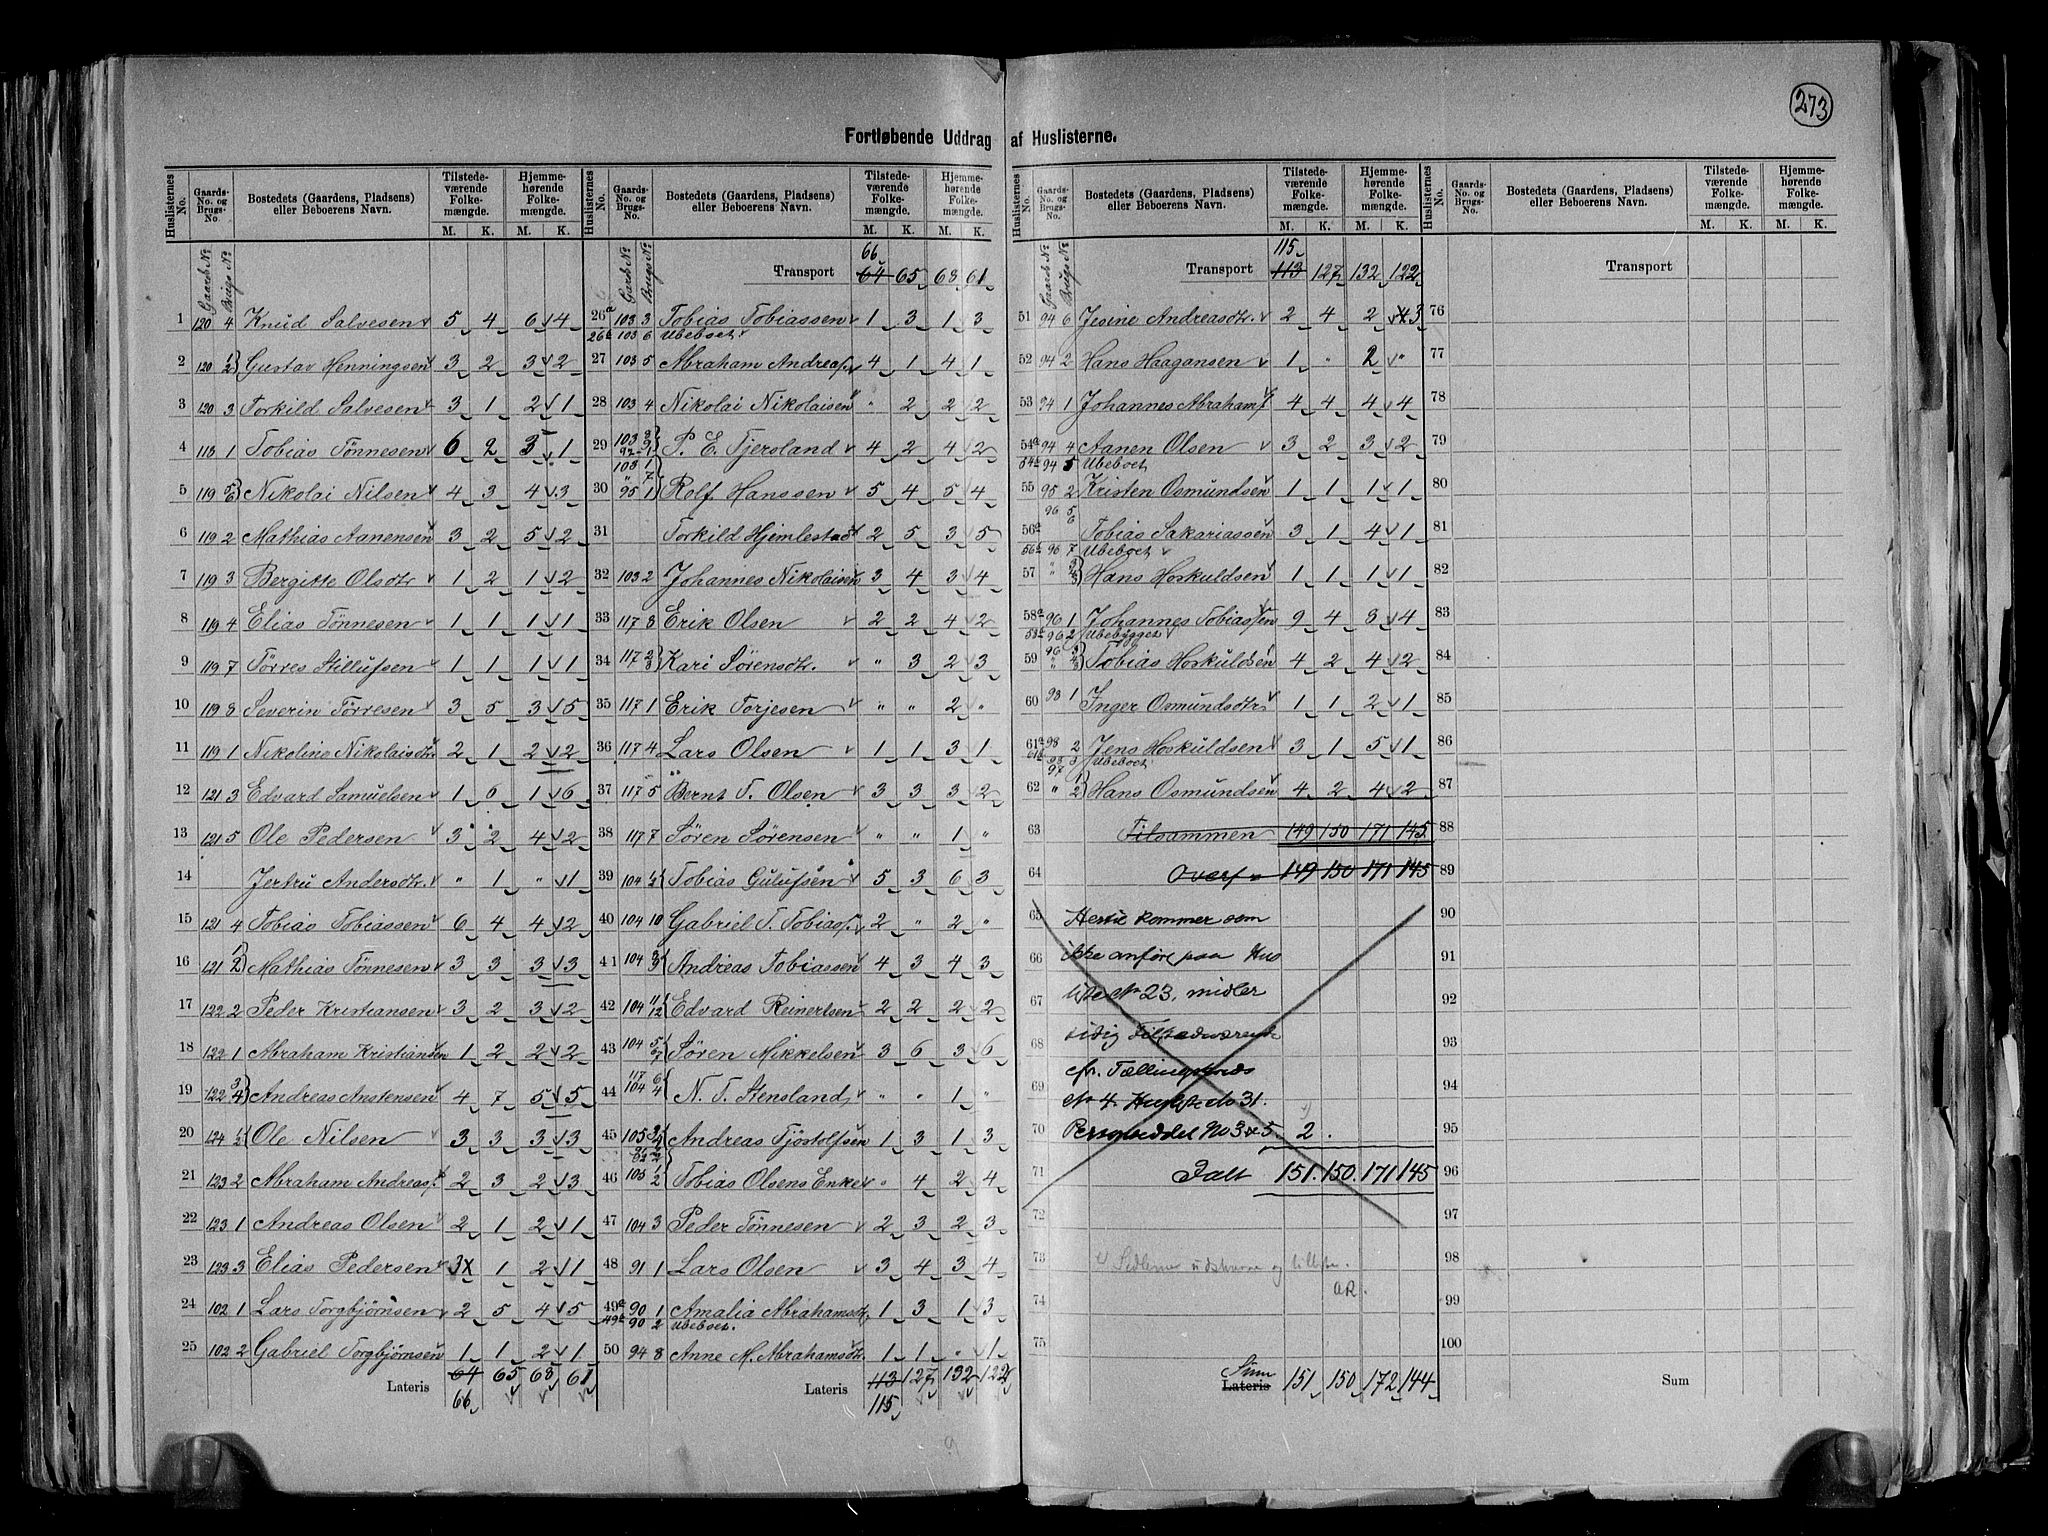 273
Fortløbende Uddrag af Huslisterne.
Huslisternes No. Gaards-No. og Brugs-No. Bostedets (Gaardens, Pladsens) eller Beboerens Navn. Tilstedeværende Folkemængde. Hjemmehørende Folkemængde. M. K. M. K.
Gaards No Brugs No
1 120 4 Knud Salvesen 5 4 6 4
2 120 1/2 Gustav Henningsen 3 2 3 2
3 120 3 Torkild Salvesen 3 1 2 1
4 118 1 Tobias Tønnesen 6 2 3 1
5 119 5/6 Nikolai Nilsen 4 3 4 3
6 119 2 Mathias Aanensen 3 2 5 2
7 119 3 Bergitte Olsdtr 1 2 1 2
8 119 4 Elias Tønnesen 1 1 1 1
9 119 7 Tørres Stillufsen 1 1 1 1
10 119 8 Severin Tørresen 3 5 3 5
11 119 1 Nikoline Nikolaisdtr 2 1 2 2
12 121 3 Edvard Samuelsen 1 6 1 6
13 121 5 Ole Pedersen 3 2 4 2
14 Jertru Andersdtr. " 1 " 1
15 121 4 Tobias Tobiassen 6 4 4 2
16 121 1/2 Mathias Tønnesen 3 3 3 3
17 122 2 Peder Kristiansen 3 2 3 2
18 122 1 Abraham Kristiansen 1 2 2 2
19 122 3/4 Andreas Anstensen 4 7 5 5
20 124 1/2 Ole Nilsen 3 3 3 3
21 123 2 Abraham Andreass. 2 3 2 3
22 123 1 Andreas Olsen 2 1 2 1
23 123 3 Elias Pedersen 3 1 2 1
24 102 1 Lars Torgbjørnsen 2 5 4 5
25 102 2 Gabriel Torgbjørnsen 1 1 2 1
Lateris 64 65 68 61
66
Huslisternes No. Gaards-No. og Brugs-No. Bostedets (Gaardens, Pladsens) eller Beboerens Navn. Tilstedeværende Folkemængde. Hjemmehørende Folkemængde. M. K. M. K.
66
Transport 64 65 68 61
26a 103 3 Tobias Tobiassen 1 3 1 3
26b 103 6 Ubeboet
27 103 5 Abraham Andreass. 4 1 4 1
28 103 4 Nikolai Nikolaisen " 2 2 2
29 103 8 P. E. Tjersland 4 2 4 2
30 95 1 Rolf Hanssen 5 4 5 4
31 Torkild Hjemlestad 2 5 3 5
32 103 2 Johannes Nikolaisen 3 4 3 4
33 117 8 Erik Olsen 2 2 4 2
34 117 2/3 Kari Sørensdtr. " 3 2 3
35 117 1 Erik Torjesen " " 2 "
36 117 4 Lars Olsen 1 1 3 1
37 117 5 Bernt T. Olsen 3 3 3 2
38 117 7 Søren Sørensen " " 1 "
39 104 1/2 Tobias Gulufsen 5 3 6 3
40 104 10 Gabriel T. Tobiass. 2 " 2 "
41 104 Andreas Tobiassen 4 3 4 3
42 104 11/12 Edvard Reinertsen 2 2 2 2
43 104 Søren Mikkelsen 3 6 3 6
44 117 6 104 4 N. T. Stensland " " 1 "
45 105 Andreas Tjøstolfsen 1 3 1 3
46 105 1/2 Tobias Olsens Enke " 4 2 4
47 104 3 Peder Tønnesen 2 3 2 3
48 91 1 Lars Olsen 3 4 3 4
49a 90 1 Amalia Abrahamsdtr. 1 3 1 3
49b 90 2 Ubeboet.
50 94 8 Anne M. Abrahamsdtr. 1 1 " 1
Lateris 113 127 132 122
115
Huslisternes No. Gaards-No. og Brugs-No. Bostedets (Gaardens, Pladsens) eller Beboerens Navn. Tilstedeværende Folkemængde. Hjemmehørende Folkemængde. M. K. M. K.
115
Transport 113 127 132 122
51 94 6 Jesine Andreasdtr. 2 4 2 3
52 94 2 Hans Haagansen 1 " 2 "
53 94 1 Johannes Abrahams. 4 4 4 4
54a 94 4 Aanen Olsen 3 2 3 2
54b 94 5 Ubeboet
55 95 2 Kristen Osmundsen 1 1 1 1
56a 96 5/6 Tobias Sakariassen 3 1 4 1
56b 96 7 Ubeboet
57 " Hans Hoskuldsen 1 1 1 1
58a 96 1 Johannes Tobiassen 9 4 8 4
58b 96 2 Ubebygget
59 96 Tobias Hoskuldsen 4 2 4 2
60 98 1 Inger Osmundsdtr 1 1 2 1
61a 98 2 Jens Hoskuldsen 3 1 5 1
61b 98 3 Ubeboet
62 97 1/2 Hans Osmundsen 4 2 4 2
63 Tilsammen 149 150 171 145
64 Overf 149 150 171 145
65 Hertil kommer som
66 ikke anført paa Hus
67 liste No 23, midler
68 tidig Tilstedeværende
69 cfr. Tællingskreds
No 4. Husliste No 31.
70 Personseddel No 3 & 5 2.
71 Ialt 151. 150. 171 145
72
73 Sedlerne udskrevne og tillagte.
74 OR.
75
Sum Lateris 151 150 172 144
Huslisternes No. Gaards-No. og Brugs-No. Bostedets (Gaardens, Pladsens) eller Beboerens Navn. Tilstedeværende Folkemængde. Hjemmehørende Folkemængde. M. K. M. K.
Transport
76
77
78
79
80
81
82
83
84
85
86
87
88
89
90
91
92
93
94
95
96
97
98
99
100
Sum